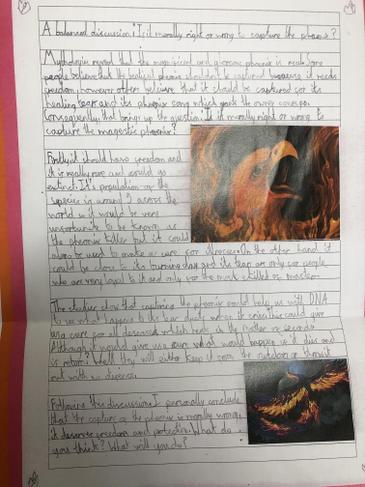 A balanced discussion: Is it morally right or wrong to capture the pheonix?
Mythologies reveal that the magnificent and glorious pheonix is real. Some
people believe that the beatiful pheonix shouldn't be captured because it needs
freedom, however others believe that it should be captured for its
healing tears and its pheonix song which the owner
Consequently, that brings up the question, Is it morally right or wrong to
capture the magestic pheonix?
Firstly it should have freedom and
it is really rare and could go
extinct. It's population of the
species is around 3 across the
world so it would be very
unfortunate to be known as
the pheonix killer but it could
also be used to make a cure for On the other hand it
could be close to its burning day and its tear are only for people
who are very loyal to it and only for the most skilled
The studies show that capturing the pheonix could help us with DNA
to see what happens to the tear ducts when it cries this could give
us a cure for all deseases which heals in the matter of seconds.
Although it would give us a cure what would happen if it dies and
is not? Well they will either keep it from the outdoors or
out with
Following this discussion, I personally conclude
that the capture of the pheonix is morally wrong,
it deserves freedom and protection. What do
you think? What will you do?